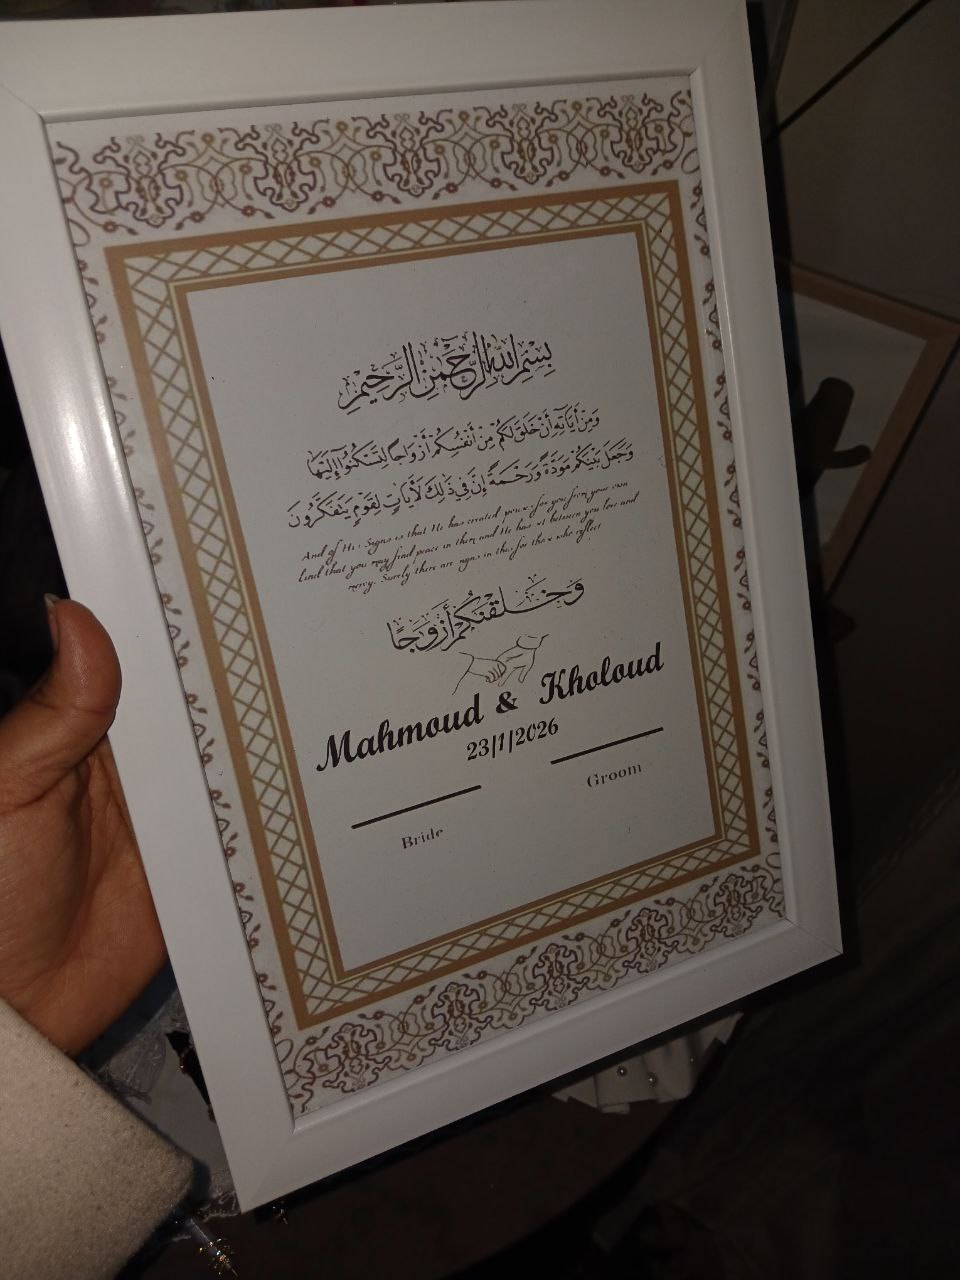 بِسْمِ اللَّهِ الرَّحْمَٰنِ الرَّحِيمِ
وَمِنْ أَيَاتِهِ أَنْ خَلَقَ لَكُمْ مِنْ أَنْفُسِكُمْ أَزْوَاجًا لِتَسْكُنُوا إِلَيْهَا
وَجَعَلَ بَيْنَكُمْ مَوَدَّةً وَرَحْمَةً إِنَّ فِي ذَلِكَ لَأَيَاتٍ لِقَوْمٍ يَتَفَكَّرُونَ
And of His Signs is that He has created for you from your own
kind that you may find peace in them and He has set between you love and
mercy. Surely there are signs in this for those who reflect
وَخَلَقْنَكُمْ أَزْوَجًا
Mahmoud & Kholoud
23/1/2026
Bride Groom